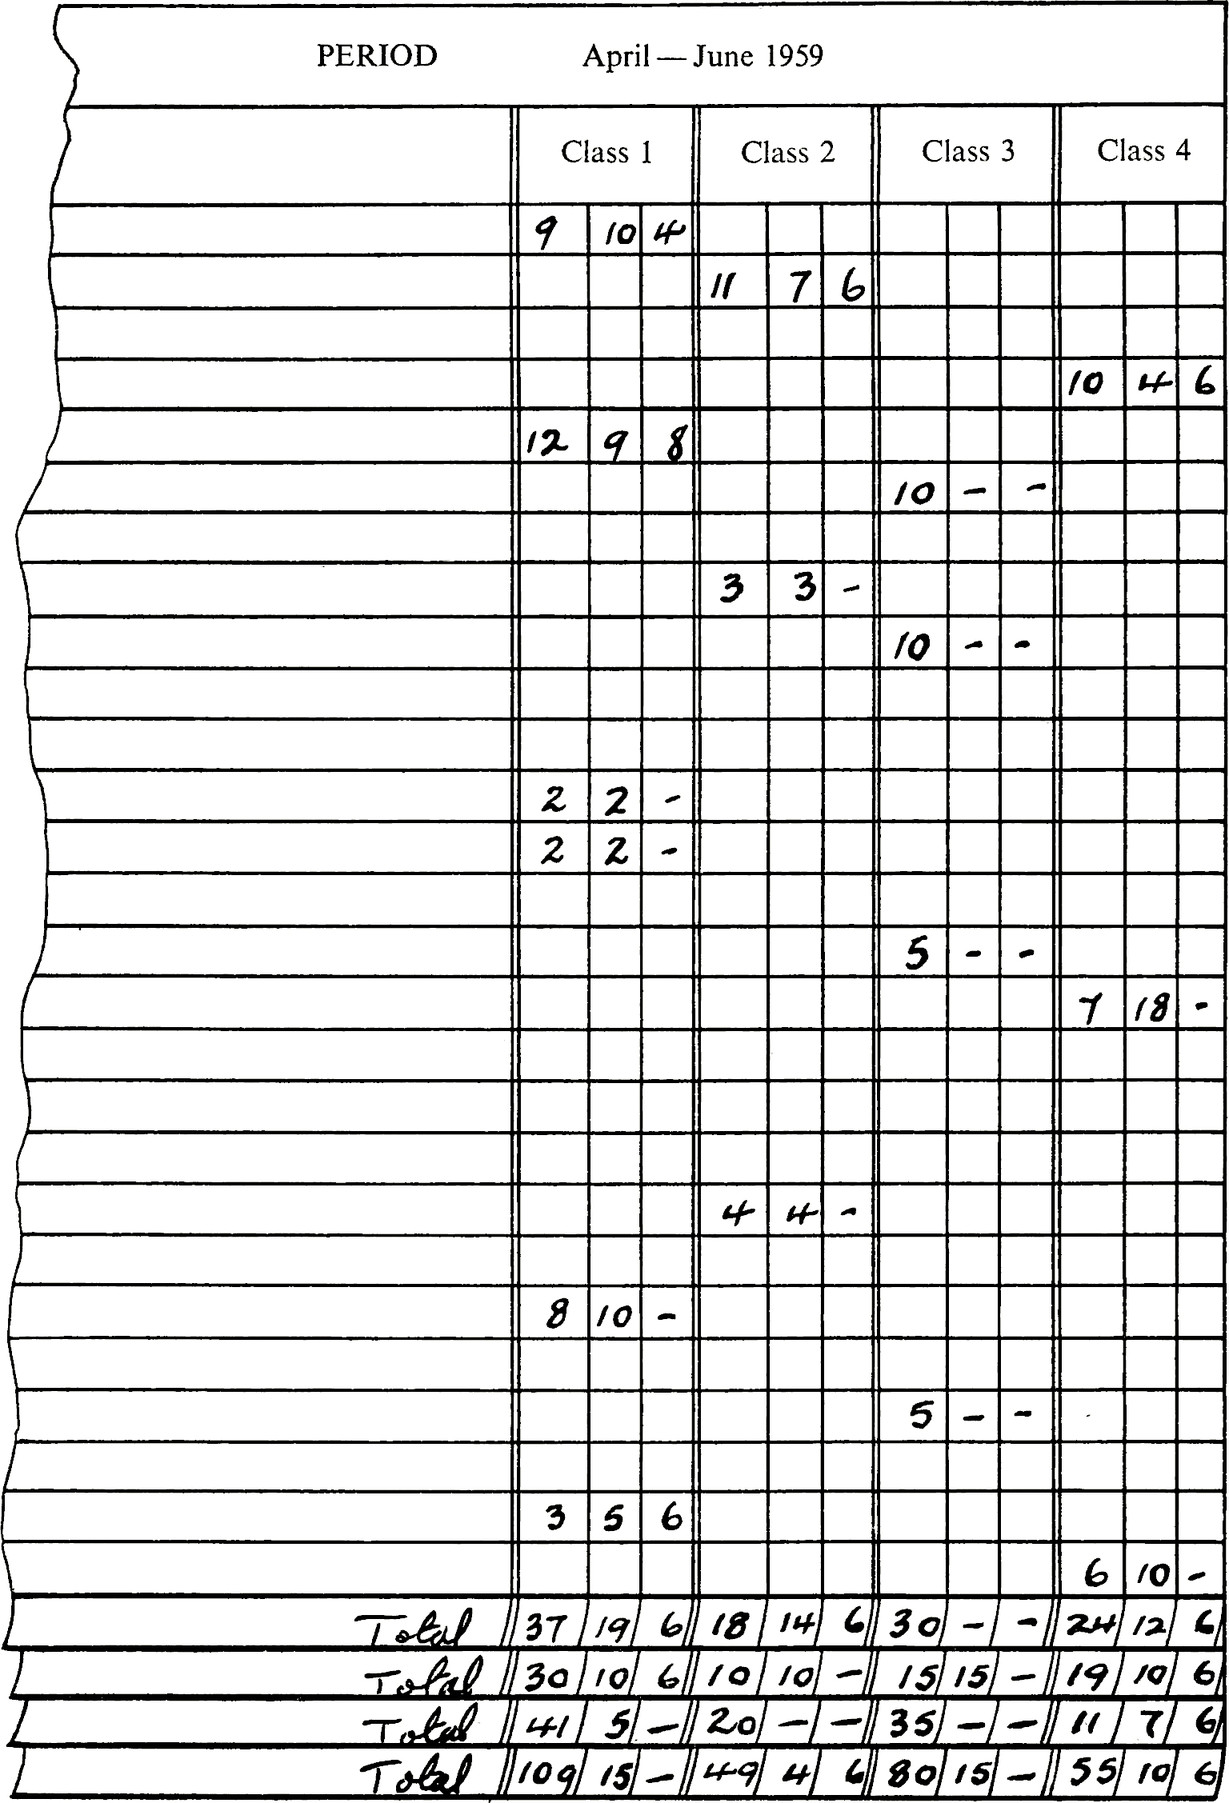 PERIOD April — June 1959
Class 1 Class 2 Class 3 Class 4
9 10 4
11 7 6
10 4 6
12 9 8
10 - -
3 3 -
10 - -
2 2 -
2 2 -
5 - -
7 18 -
4 4 -
8 10 -
5 - -
3 5 6
6 10 -
Total 37 19 6 18 14 6 30 - - 24 12 6
Total 30 10 6 10 10 - 15 15 - 19 10 6
Total 41 5 - 20 - - 35 - - 11 7 6
Total 109 15 - 49 4 6 80 15 - 55 10 6